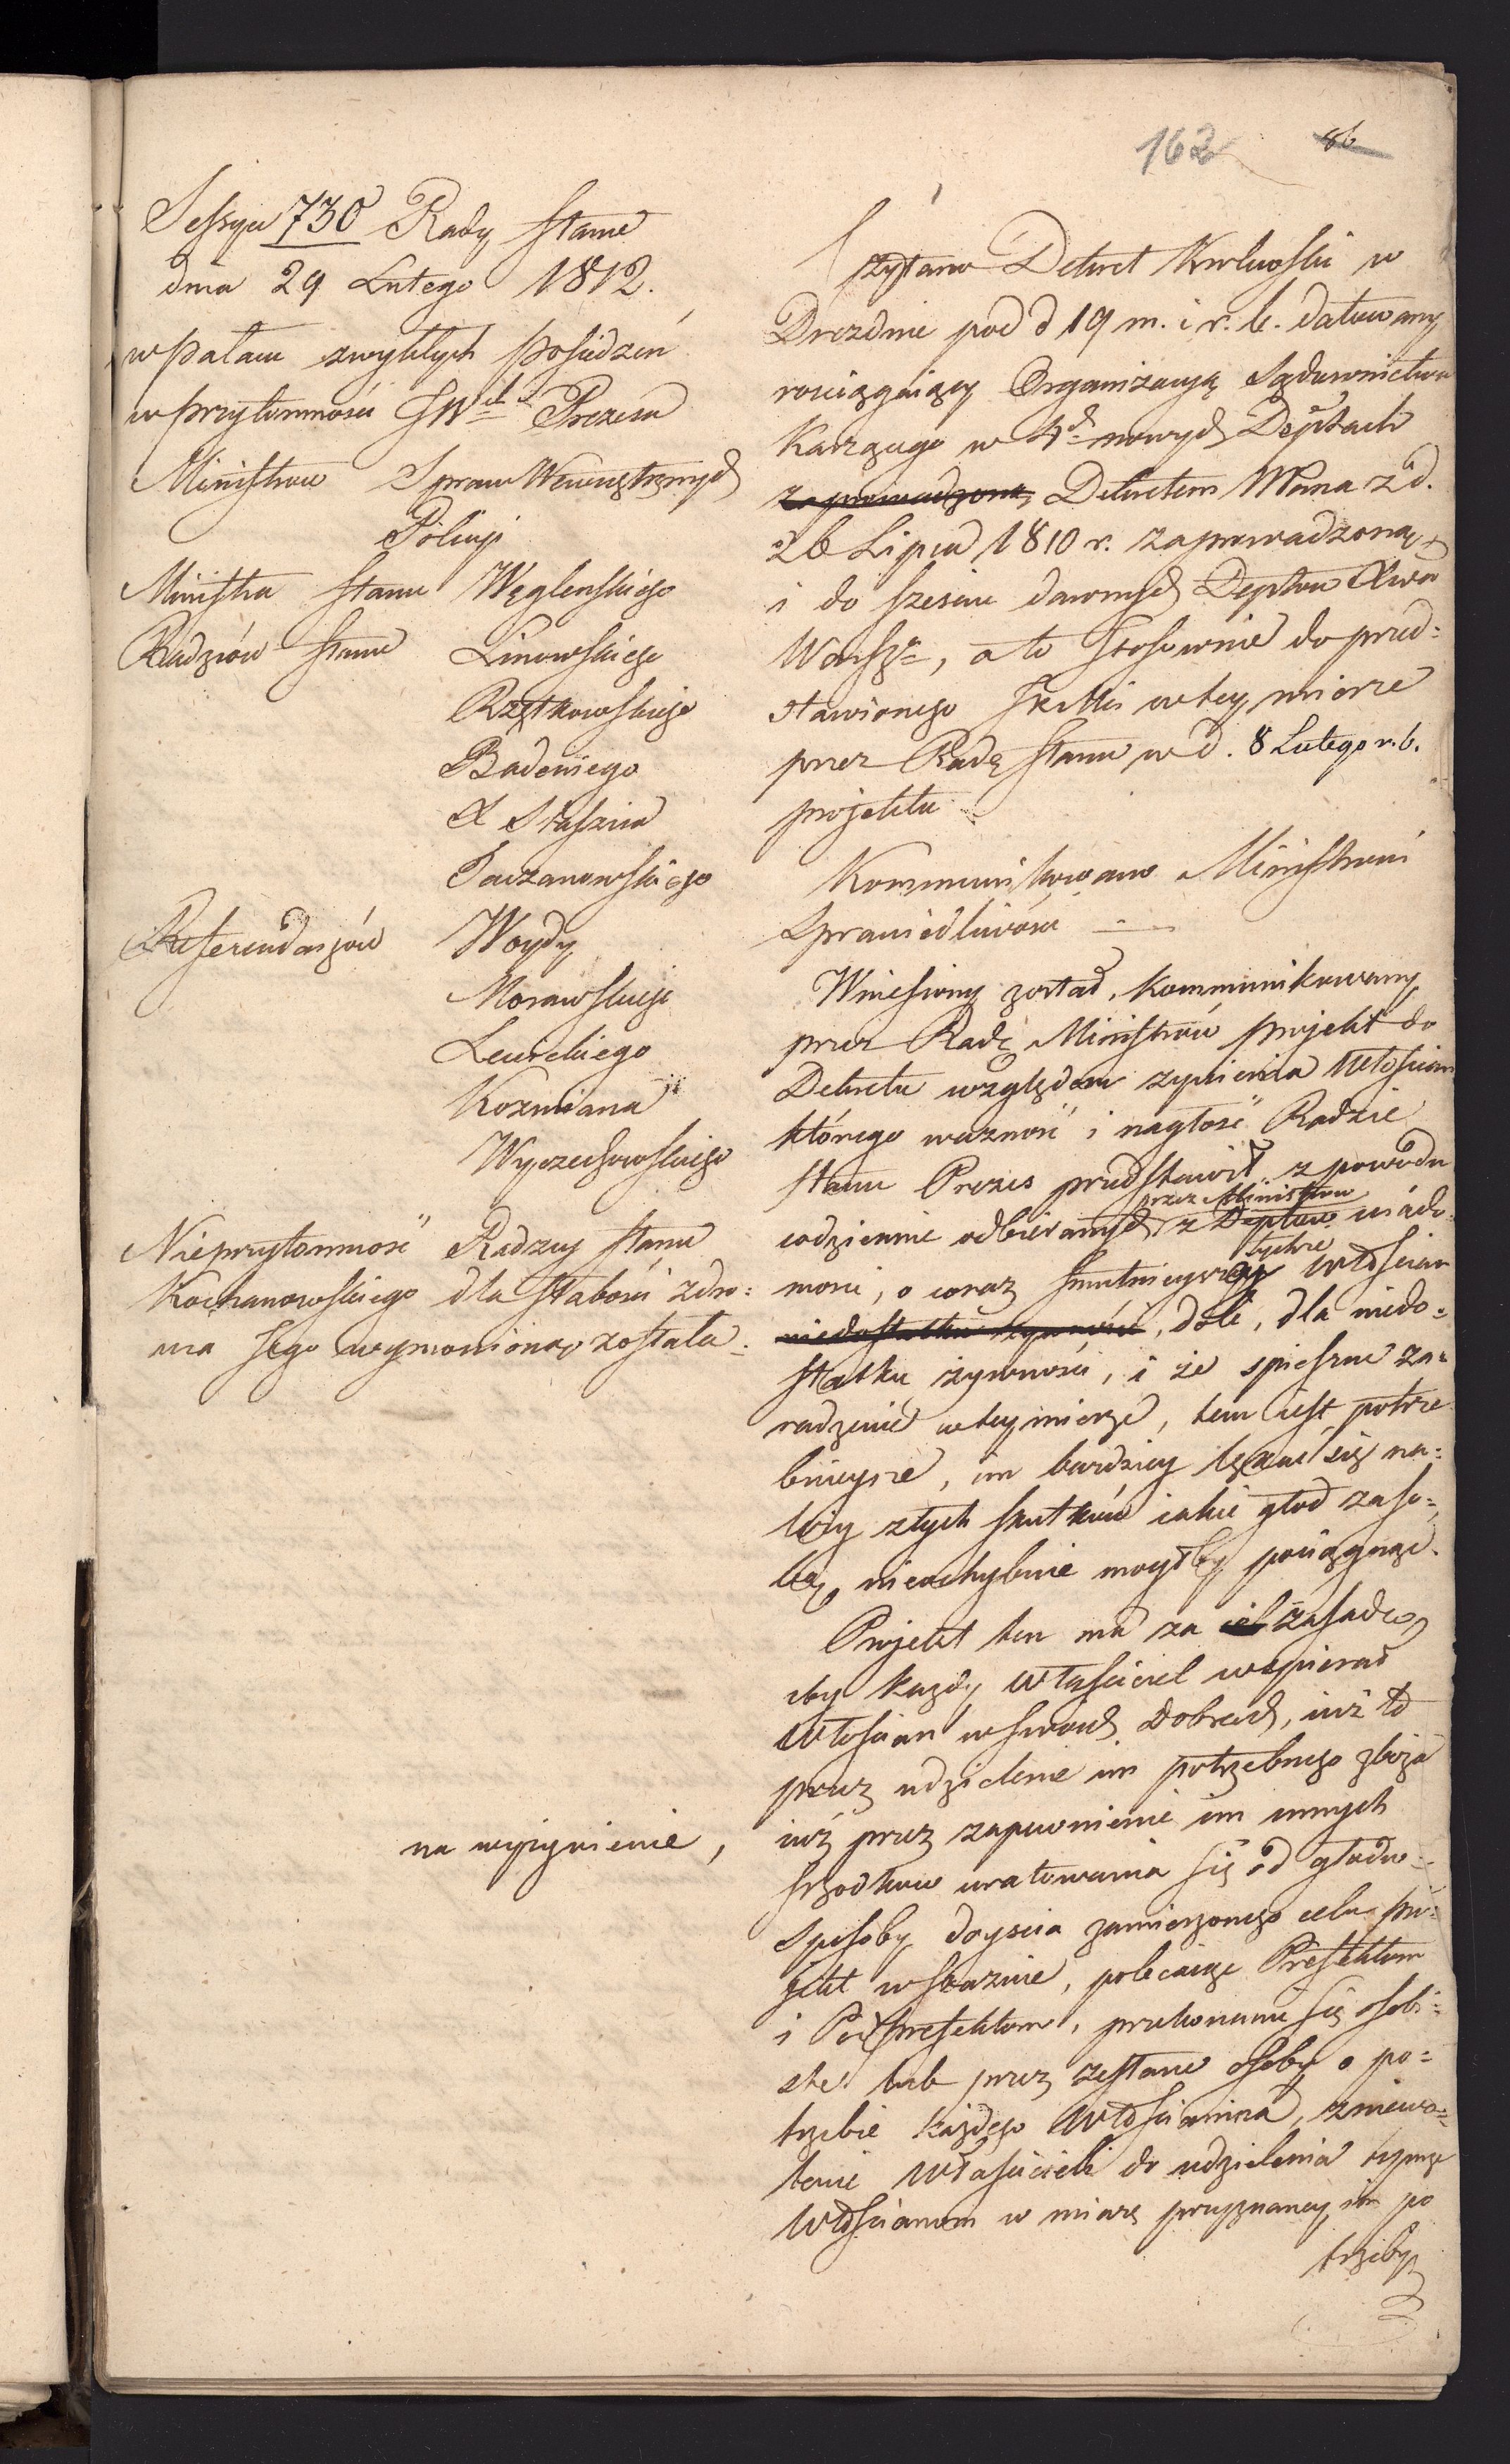 162 86
Sessya 730 Rady Stanu
dnia 29 Lutego 1812.
w Pałacu zwykłych Posiedzeń
w przytomności JWch Prezesa
Ministrów Spraw Wewnętrznych
Policyi
Ministra Stanu Węglenskiego
Radzców Stanu Linowskiego
Rzętkowskiego
Badeniego
X Staszica
Taczanowskiego
Referendarzów Woydy
Morawskiego
Lewickiego
Kozmiana
Wyczechowskiego
Nieprzytomność Radzcy Stanu
Kochanowskiego dla słabości zdro=
wia Jego wymowioną została.
na wyżywienie,
Czytano Dekret Królewski w
Dreznie pod d 19 m. i r. b. datowany
rosciągaiący Organizacyą Sądownictwa
Karzącego w 4ch nowych Deptach
zaprowadzoną, Dekretem NPana z d.
26 Lipca 1810 r. zaprowadzoną
i do sześciu dawnych Deptów Xwa
Warszgo, a to stosownie do przed=
stawionego JKMci w tey mierze
przez Radę Stanu w d. 8 Lutego r. b.
projektu
Kommunikowano Ministrowi
Sprawiedliwości
Wniesiony został, kommunikowany
przez Radę Ministrów projekt do
Dekretu względem żywienia Włościan
którego ważność i nagłość Radzie
Stanu Prezes przedstawił z powodu
codziennie odbieranych przez Ministrów z Deptów wiado=
mości, o coraz smutnieyszey tychże Włościan
niedostatku żywności, doli, dla niedo=
statku żywności, i że spieszne za=
radzenie w tey mierze, tem iest potrze
bnieysze, im bardziey lękać się na=
leży złych skutków iakie głod za so=
bą nieochybnie mogłby pociągnąć.
Projekt ten ma za cel zasadę,
aby każdy Właściciel wspierał
Włościan w swoich Dobrach, iuż to
przez udzielenie im potrzebnego zboża
iuż przez zapewnienie im innych
srzodków uratowania się od głodu
sposoby doyscia zamierzonego celu pro=
jekt wskazuie, polecaiąc Prefektom
i Podprefektom, przekonanie się osobi=
ste lub przez zesłane osoby o po=
trzebie każdego Włościanina, zniewo=
lenie Właścicieli do udzielenia tymże
Włościanom w miarę przyznaney im po
trzeby